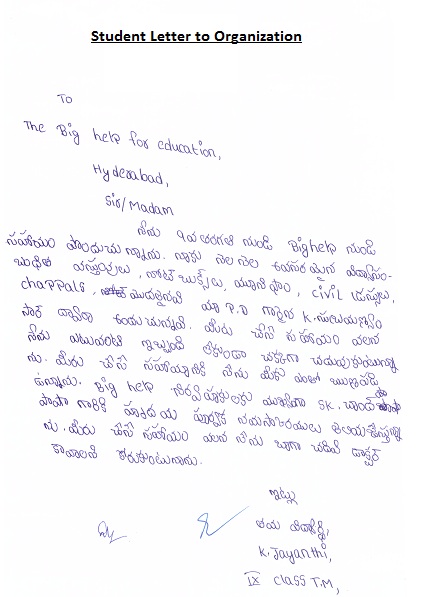 Student Letter to Organization
To
The Big help for education,
Hyderabad,
Sir/Madam
నేను 7వ తరగతి నుండి Bighelp నుండి
సహాయం పొందుచున్నాను. నాకు నెల నెల అవసరమైన
వస్తువులు, నోట్ బుక్స్, యూనిఫాం, civil డ్రస్సులు,
chappals, మొదలైనవి మా P.D గారైన K.
సార్ ద్వారా అందుచున్నవి. మీరు చేసే సహాయం వలన
నేను ఎటువంటి ఇబ్బంది లేకుండా చక్కగా చదువుకుంటున్నా
ను. మీరు చేసే సహాయానికి నేను మీకు ఎంతో
ఉన్నాను. Big help నిర్వాహకులకు SK. చాంద్
గారికి హృదయ పూర్వక నమస్కారములు తెలియజేస్తున్నా
ను. మీరు చేసే సహాయం వలన నేను బాగా చదివి డాక్టర్
కావాలని కోరుకుంటున్నాను.
ఇట్లు
K. Jayanthi,
IX class T.M,